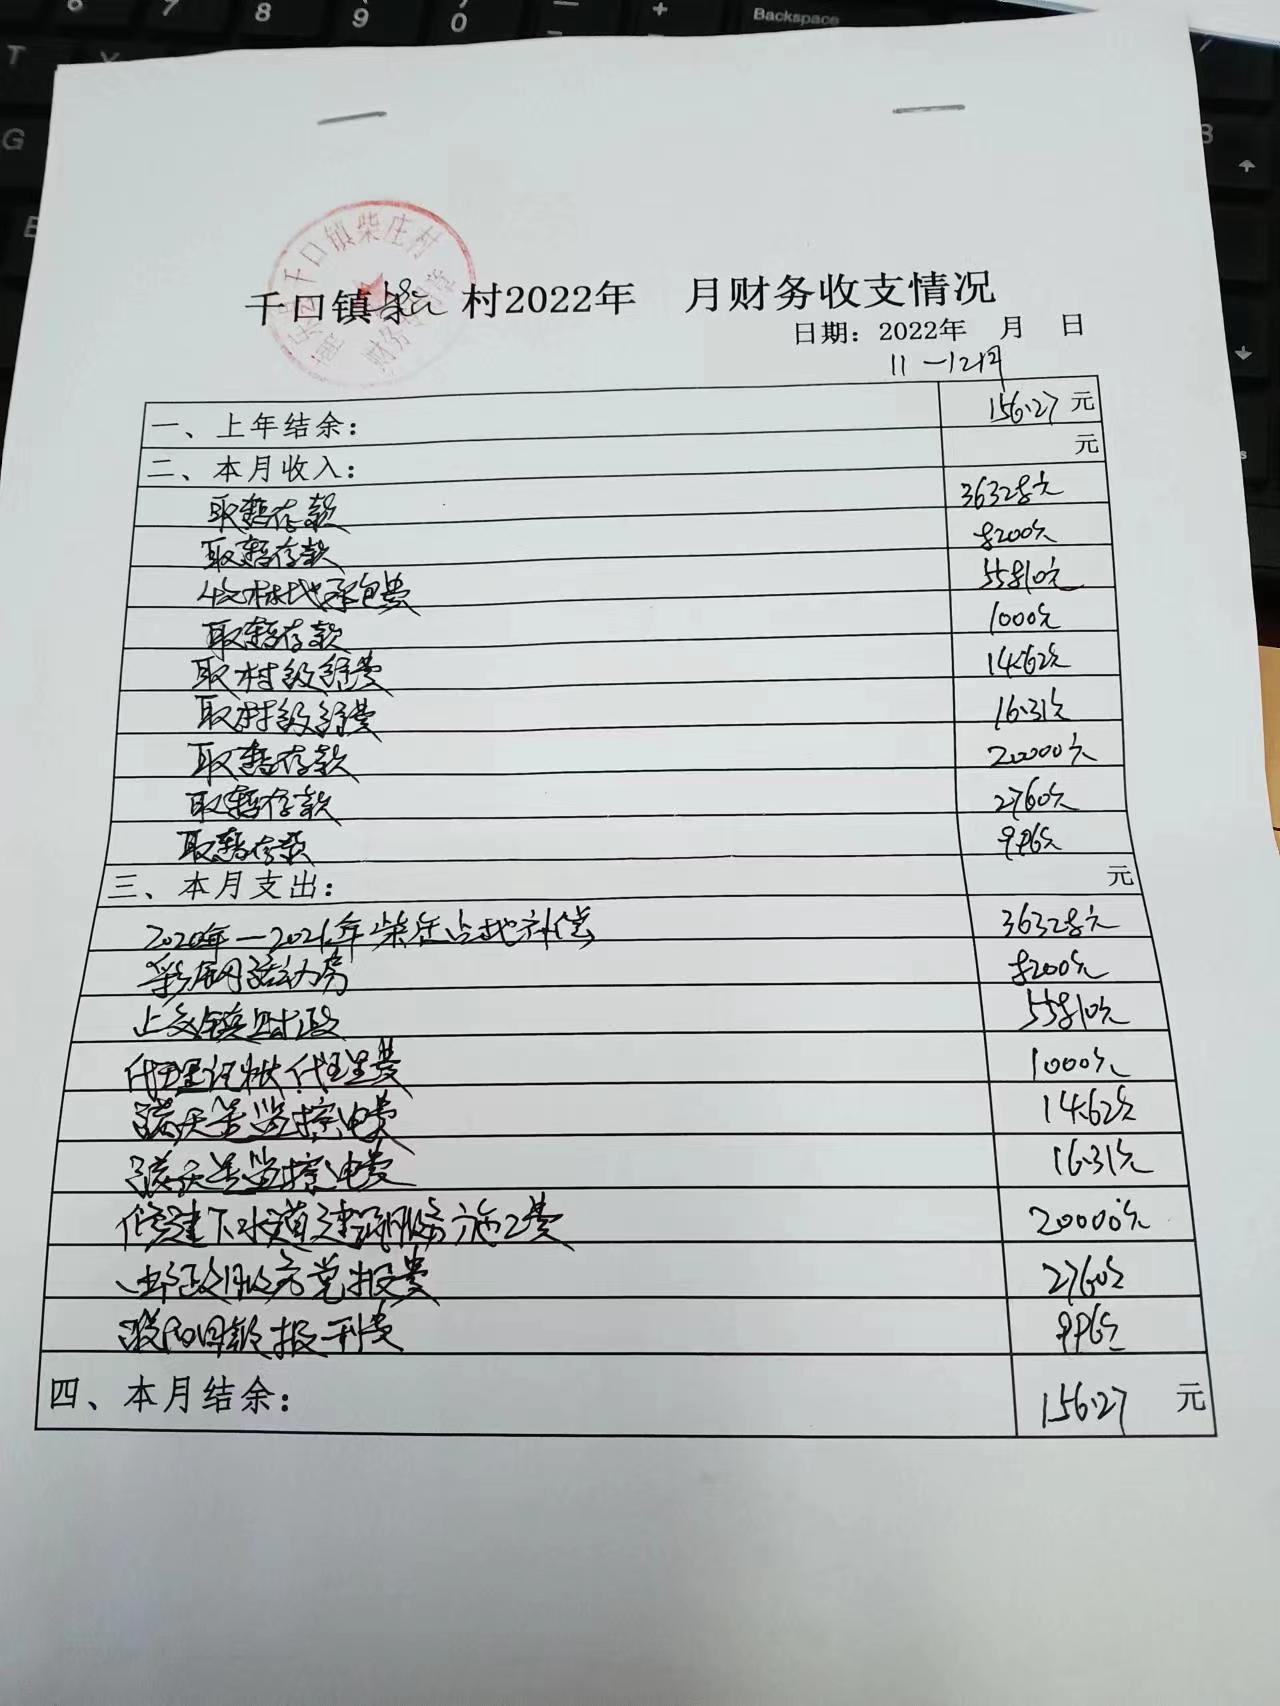 6 7 8 9 0 — +
Backspace
T Y
G
千口镇柴庄村
财务专用章
千口镇柴庄村2022年 月财务收支情况
日期：2022年 月 日
11-12月
一、上年结余： 156.27元
二、本月收入： 元
取暂存款 36328元
取暂存款 8200元
林地承包费 55810元
取暂存款 1000元
取村级经费 14.62元
取村级经费 16.31元
取暂存款 20000元
取暂存款 2760元
取暂存款 996元
三、本月支出： 元
2020年-2021年柴庄占地补偿 36328元
彩钢活动房 8200元
上交镇财政 55810元
代理记帐代理费 1000元
蓝天监控电费 14.62元
蓝天监控电费 16.31元
修建下水道建筑服务施工费 20000元
邮政服务党报费 2760元
濮阳日报报刊费 996元
四、本月结余： 156.27元